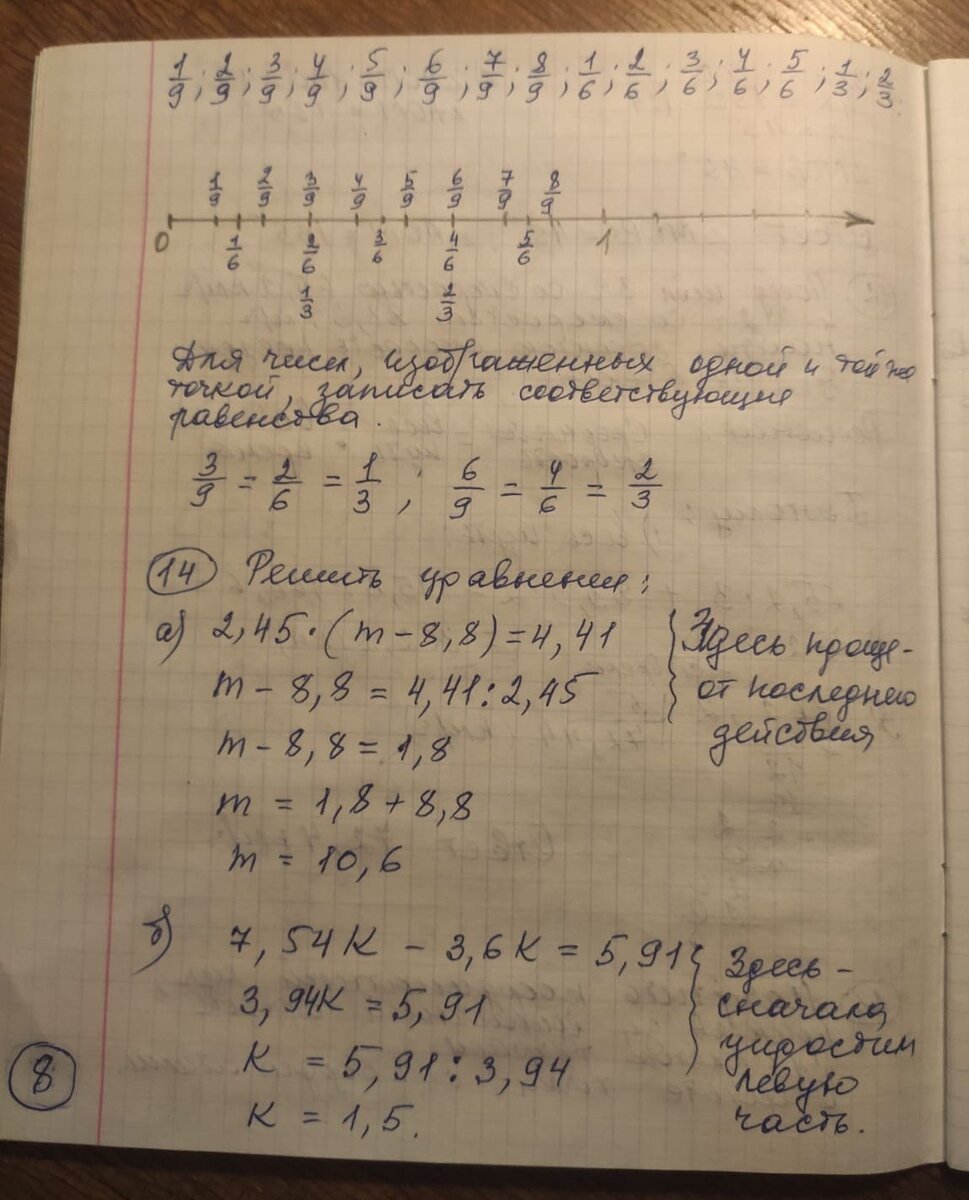 1/9; 2/9; 3/9; 4/9; 5/9; 6/9; 7/9; 8/9; 1/6; 2/6; 3/6; 4/6; 5/6; 1/3; 2/3.
1/9 2/9 3/9 4/9 5/9 6/9 7/9 8/9
0 1/6 2/6 3/6 4/6 5/6 1
1/3 2/3
Для чисел, изображенных одной и той же
точкой, записать соответствующие
равенства.
3/9 = 2/6 = 1/3; 6/9 = 4/6 = 2/3
14 Решить уравнения:
а) 2,45·(m-8,8)=4,41
m-8,8=4,41:2,45
m-8,8=1,8
m=1,8+8,8
m=10,6
Здесь проще-
от последнего
действия
б) 7,54К - 3,6К = 5,91
3,94К=5,91
К = 5,91:3,94
К = 1,5.
Здесь -
сначала
упростим
левую
часть.
8